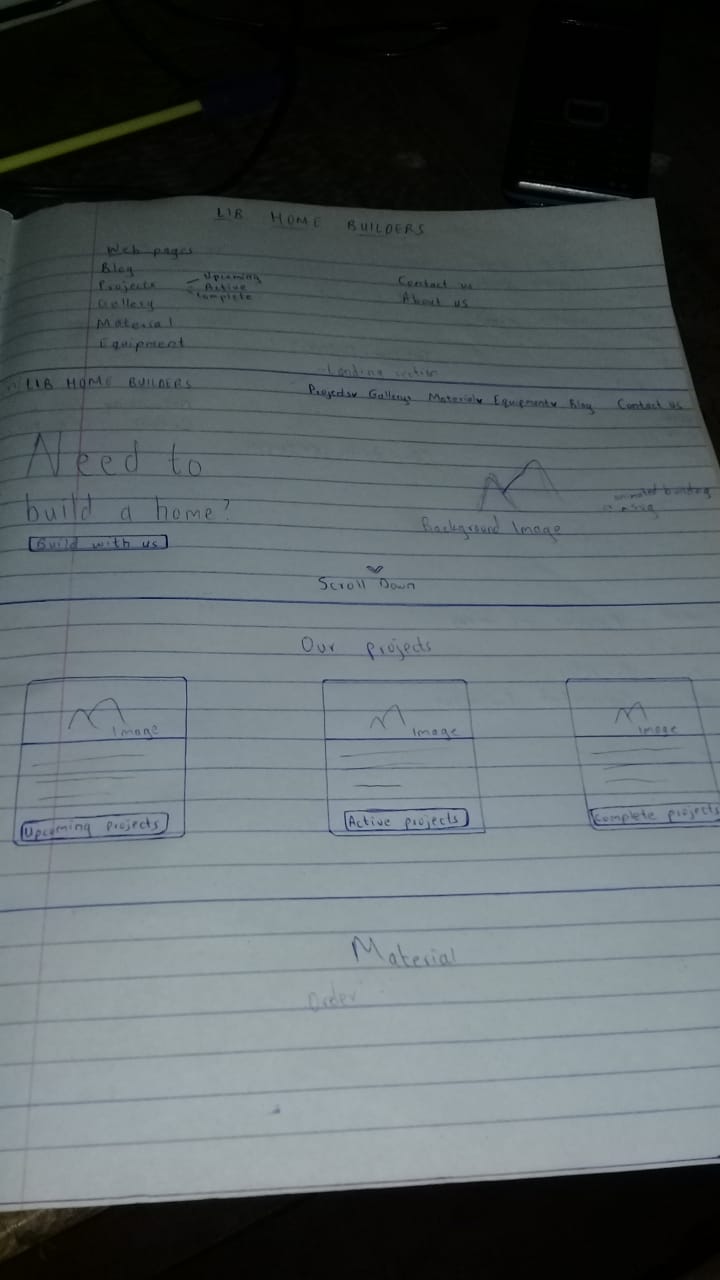 LIB HOME BUILDERS
Web pages
Blog
Projects Upcoming
Active
Complete
Gallery
Material
Equipment
Contact us
About us
Landing section
LIB HOME BUILDERS
Projects Gallery Material Equipment Blog Contact us
Need to
build a home?
Build with us
Background Image
animated
Scroll Down
Our projects
Image
Image
Image
Upcoming projects
Active projects
Complete projects
Material
Order